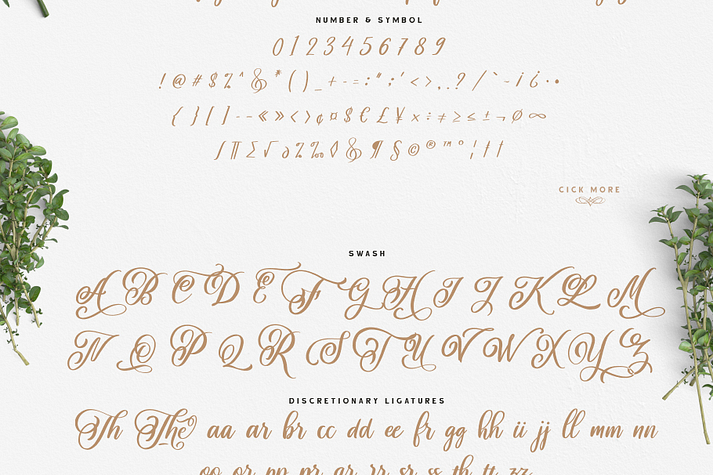 NUMBER & SYMBOL
0 1 2 3 4 5 6 7 8 9
! @ # $ % ^ & * ( ) _ + - = : " ; ' < > , . ? / ` ~ ¡ ¿ · •
{ } [ ] - - « » ‹ › ¢ ¤ $ € £ ¥ × ÷ ≠ ≥ ≤ ± ¬ Ø ∞
∫ ∏ ∑ √ ∂ % ‰ ◊ & ¶ § © ® ™ ° ¦ † †
CICK MORE
SWASH
A B C D E F G H I J K L M
N O P Q R S T U V W X Y Z
DISCRETIONARY LIGATURES
Th The aa ar br cc dd ee fr gg hh ii jj ll mm nn
oo or pp pr qr rr sr ss th tt zz